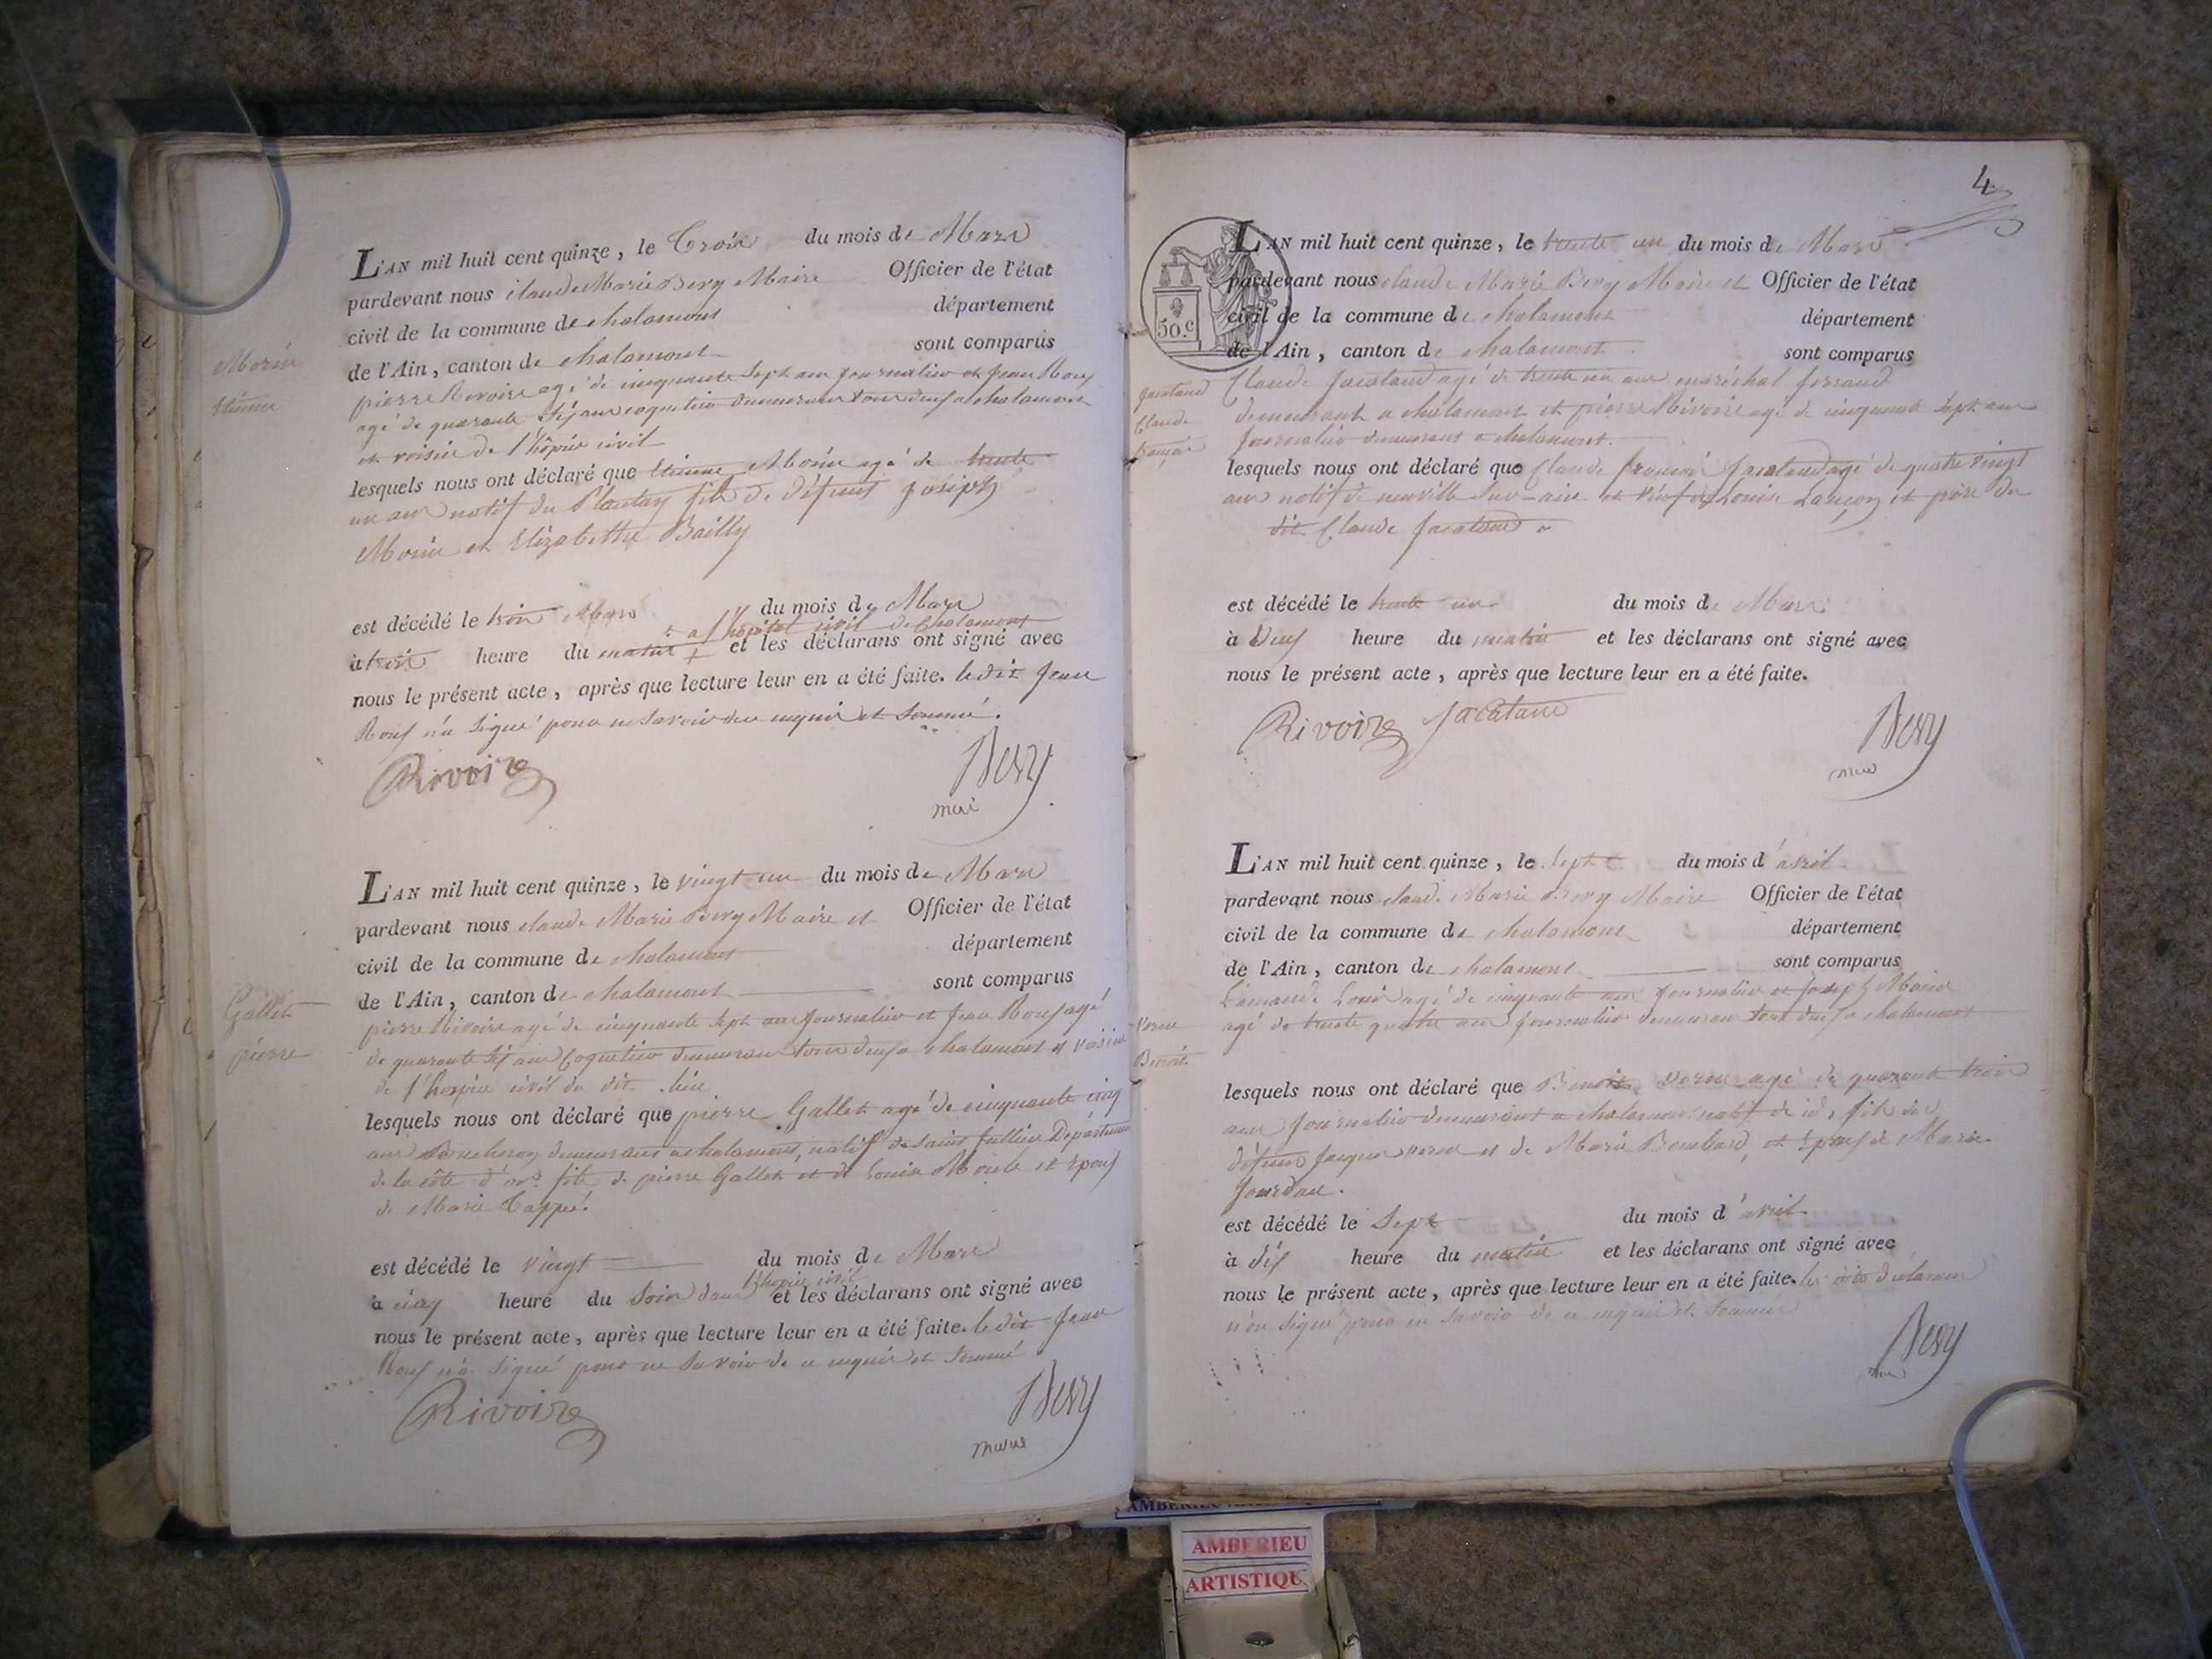 L'AN mil huit cent quinze, le Trois du mois de Mars
pardevant nous claude Marie Bery Maire Officier de l'état
civil de la commune de chalamont département
de l'Ain, canton de chalamont sont comparus
pierre Rivoire agé de cinquante sept ans journalier et jean
agé de quarante six ans coquetier demeurant tous deux a chalamont
et voisin de l'hospice civil
lesquels nous ont déclaré que Etienne Morin agé de trente
un ans natif du Plantay fils de défunt joseph
Morin et Elizabethe Bailly
Morin
Etienne
est décédé le trois Mars du mois de Mars
+ a l'hopital civil de Chalamont
à trois heure du matin + et les déclarans ont signé avec
nous le présent acte, après que lecture leur en a été faite. ledit jean
n'a signé pour ne savoir de ce enquis et sommé.
Rivoire Bery
maire
L'AN mil huit cent quinze, le vingt un du mois de Mars
pardevant nous claude Marie Bery Maire et Officier de l'état
civil de la commune de chalamont département
de l'Ain, canton de chalamont sont comparus
pierre Rivoire agé de cinquante sept ans journalier et jean agé
de quarante six ans coquetier demeurant tous deux a chalamont et voisin
de l'hospice civil du dit lieu
Gallet
pierre
lesquels nous ont déclaré que pierre Gallet agé de cinquante cinq
ans demeurant a chalamont, natif de saint jullien Département
de la côte d'or fils de pierre Gallet et de Louise et époux
de Marie Tappé.
est décédé le vingt du mois de Mars
l'hospice civil
à cinq heure du soir dans et les déclarans ont signé avec
nous le présent acte, après que lecture leur en a été faite. ledit jean
n'a signé pour ne savoir de ce enquis et sommé
Rivoire Bery
maire
4
50.c
L'AN mil huit cent quinze, le trente un du mois de Mars
pardevant nous claude Marie Bery Maire et Officier de l'état
civil de la commune de chalamont département
de l'Ain, canton de chalamont sont comparus
Claude jacataud agé de trente un ans maréchal ferrand
demeurant a chalamont et pierre Rivoire agé de cinquante sept ans
journalier demeurant a chalamont.
jacataud
Claude
françois
lesquels nous ont déclaré que Claude françois jacataud agé de quatre vingt
ans natif de neuville sur-ain et veuf de Louise Lançon et père du
dit Claude jacataud
est décédé le trente un du mois de Mars
à deux heure du matin et les déclarans ont signé avec
nous le présent acte, après que lecture leur en a été faite.
Rivoire jacataud Bery
maire
L'AN mil huit cent quinze, le sept du mois d'avril
pardevant nous claude Marie Bery Maire Officier de l'état
civil de la commune de chalamont département
de l'Ain, canton de chalamont sont comparus
Louis agé de cinquante ans journalier et joseph
agé de trente quatre ans journalier demeurant tous deux a chalamont
Benoit
lesquels nous ont déclaré que Benoit agé de quarante trois
ans journalier demeurant a chalamont natif de id, fils de
défunt jacques et de Marie Bombard, et époux de Marie
jourdan.
est décédé le sept du mois d'avril
à dix heure du matin et les déclarans ont signé avec
nous le présent acte, après que lecture leur en a été faite. les dits déclarans
n'on signé pour ne savoir de ce enquis et sommés
Bery
AMBERIEU
ARTISTIQU